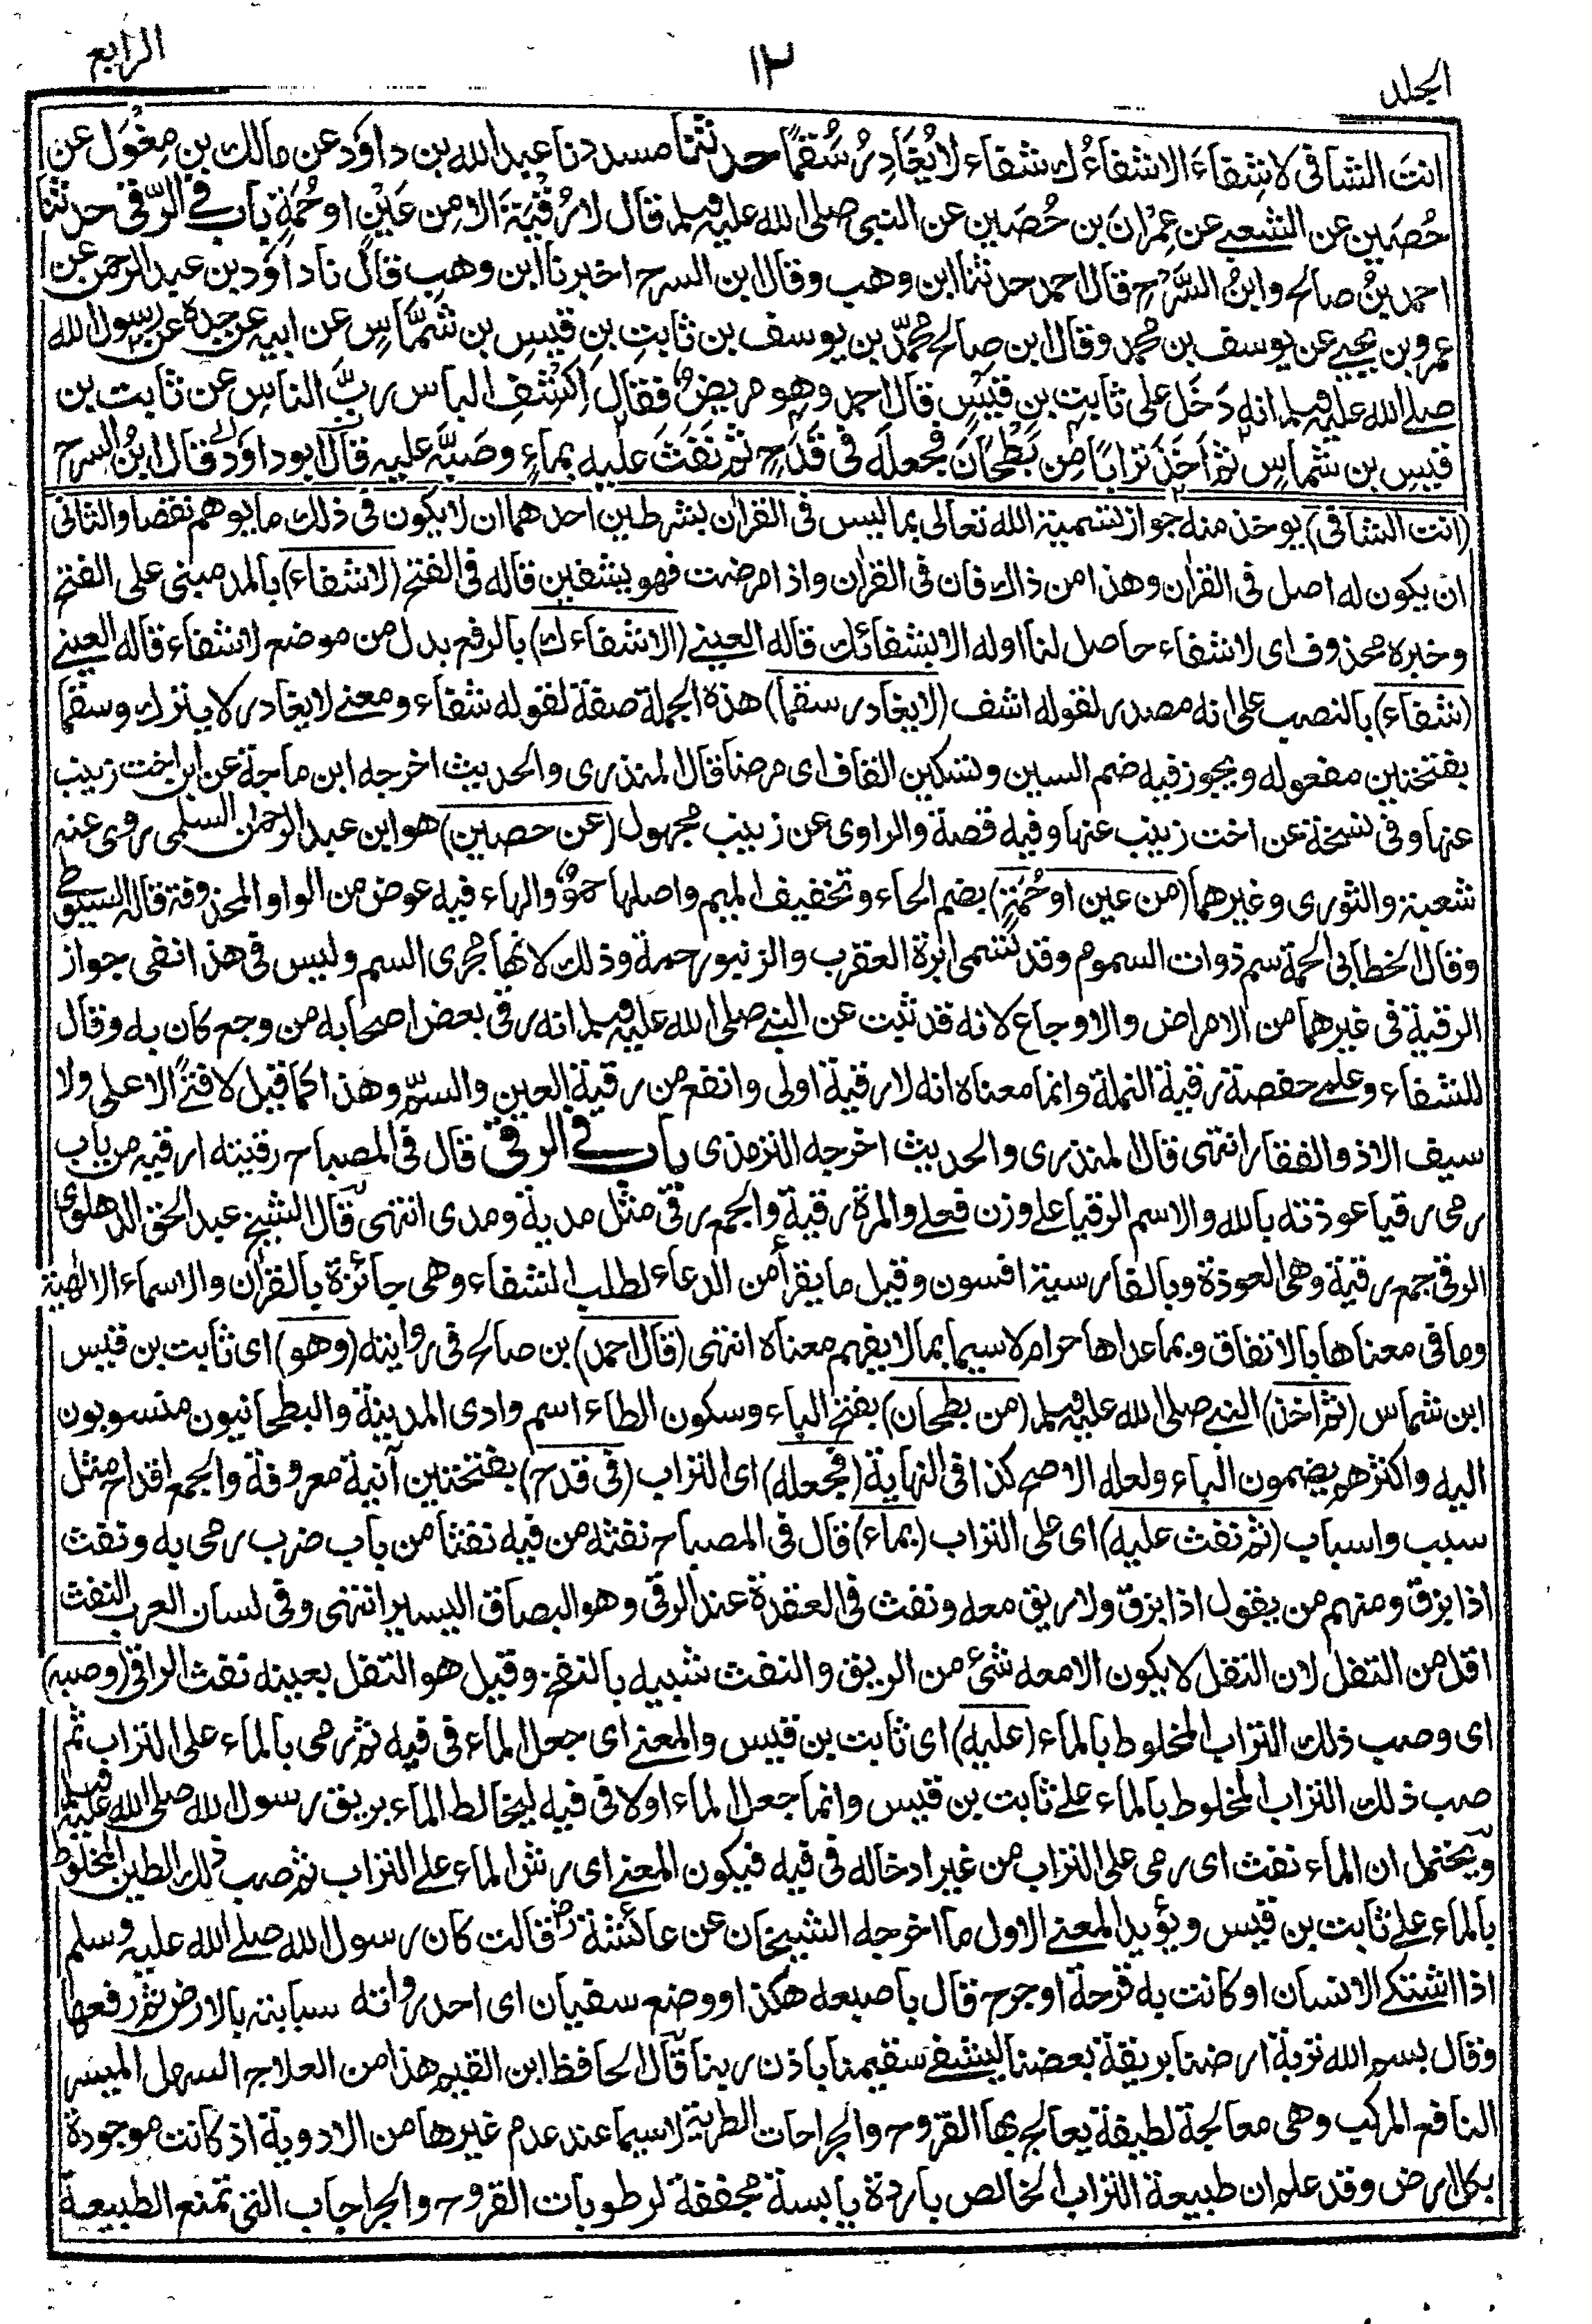 الجلد
١٢
الرابع
انتَ الشافى لاشِفاءَ الاشفاءُك شفاء لايُغَادِرُ سُقمًا حدثنا مسدد نا عبد الله بن داوٗد عن مالك بنِ مِغْوَل عن
حُصَين عن الشعبے عن عِمْرَانَ بن حُصَين عن النبى صلى الله عليه وسلم قال لارُقْيَةَ الا مِن عَيْنٍ اوحُمَةٍ باب فے الرُّقٰى حدثنا
احمد بنُ صالح وابنُ السَّرْحِ قال احمد حدثنا ابن وهب وقال ابن السرح اخبرنا ابن وهب قال نا داوٗد بن عبد الرحمن عن
عمرو بن يحيے عن يوسف بن محمد وقال ابن صالح محمدُ بن يوسف بن ثابتِ بنِ قيسِ بن شَمَّاسٍ عن ابيه عن جده عن رسول الله
صلے الله عليه وسلم انه دَخَل على ثابتِ بنِ قَيْسٍ قال احمد وهو مريضٌ فقال اِكْشِفِ الباس ربَّ الناسِ عن ثابت بن
قيسِ بن شماسٍ ثم اَخَذَ ترابًا مِن بَطْحَانَ فجعلَه فى قَدَحٍ ثم نَفَثَ عليه بماءٍ وصَبَّه عليه قال ابوداوٗد قال ابنُ السرح
(انت الشافى) يوخذ منه جواز تسمية الله تعالى بما ليس فى القران بشرطين احدهما ان لايكون فى ذلك ما يوهم نقصا والثانى
ان يكون له اصل فى القران وهذا من ذاك فان فى القران واذا مرضت فهو يشفين قاله فى الفتح (لاشفاء) بالمد مبنى على الفتح
وخبره محذوف اى لاشفاء حاصل لنا اوله الا بشفائك قاله العينے (الاشفاءك) بالرفع بدل من موضع لاشفاء قاله العينے
(شفاء) بالنصب على انه مصدر لقوله اشف (لايغادر سقما) هذه الجملة صفة لقوله شفاء ومعنے لايغادر لايترك وسقما
بفتحتين مفعوله ويجوز فيه ضم السين وتسكين القاف اى مرضا قال المنذرى والحديث اخرجه ابن ماجة عن ابن اخت زينب
عنها وفى نسخة عن اخت زينب عنها وفيه قصة والراوى عن زينب مجهول (عن حصين) هو ابن عبد الرحمن السلمى روى عنه
شعبة والثورى وغيرهما (من عين اوحُمَةٍ) بضم الحاء وتخفيف الميم واصلها حموٌ والهاء فيه عوض من الواو المحذوفة قاله السيوطى
وقال الخطابى الحمة سم ذوات السموم وقد تسمى ابرة العقرب والزنبور حمة وذلك لانها مجرى السم وليس فى هذا نفى جواز
الرقية فى غيرهما من الامراض والاوجاع لانه قد ثبت عن النبے صلى الله عليه وسلم انه رقى بعض اصحابه من وجع كان به وقال
للشفاء وعلمے حفصة رقية النملة وانما معناه انه لارقية اولى وانفع من رقية العين والسم وهذا كما قيل لافتى الاعلى ولا
سيف الاذو الفقار انتهى قال المنذرى والحديث اخرجه الترمذى باب فے الرقى قال فى المصباح رقيته ارقيه من باب
رمى رقيا عوذته بالله والاسم الرقيا على وزن فعلے والمرة رقية والجمع رقى مثل مدية ومدى انتهى قال الشيخ عبد الحق الدهلوى
الرقى جمع رقية وهى العوذة وبالفارسية افسون وقيل ما يقرأ من الدعاء لطلب الشفاء وهى جائزة بالقران والاسماء الالهية
وما فى معناها بالاتفاق وبما عداها حرام لاسيما بما لايفهم معناه انتهى (قال احمد) بن صالح فى روايته (وهو) اى ثابت بن قيس
ابن شماس (ثم اخذ) النبے صلى الله عليه وسلم (من بطحان) بفتح الباء وسكون الطاء اسم وادى المدينة والبطحانيون منسوبون
اليه واكثرهم يضمون الباء ولعله الاصح كذا فى النهاية (فجعله) اى التراب (فى قدح) بفتحتين آنية معروفة والجمع اقداح مثل
سبب واسباب (ثم نفث عليه) اى على التراب (بماء) قال فى المصباح نفثه من فيه نفثا من باب ضرب رمى به ونفث
اذا بزق ومنهم من يقول اذا بزق ولاريق معه ونفث فى العقدة عند الرقى وهو البصاق اليسير انتهى وفى لسان العرب النفث
اقل من التفل لان التفل لايكون الا معه شئ من الريق والنفث شبيه بالنفخ وقيل هو التفل بعينه نفث الراقى (وصبه)
اى وصب ذلك التراب المخلوط بالماء (عليه) اى ثابت بن قيس والمعنے اى جعل الماء فى فيه ثم رمى بالماء على التراب ثم
صب ذلك التراب المخلوط بالماء على ثابت بن قيس وانما جعل الماء اولا فى فيه ليخالط الماء بريق رسول الله صلى الله عليه وسلم
ويحتمل ان الماء نفث اى رمى على التراب من غير ادخاله فى فيه فيكون المعنے اى رش الماء على التراب ثم صب ذلك الطين المخلوط
بالماء على ثابت بن قيس ويؤيد المعنے الاول ما اخرجه الشيخان عن عائشةؓ قالت كان رسول الله صلے الله عليه وسلم
اذا اشتكے الانسان او كانت به قرحة اوجرح قال باصبعه هكذا ووضع سفيان اى احد رواته سبابته بالارض ثم رفعها
وقال بسم الله تربة ارضنا بريقة بعضنا ليشفے سقيمنا باذن ربنا قال الحافظ ابن القيم هذا من العلاج السهل الميسر
النافع المركب وهى معالجة لطيفة يعالج بها القروح والجراحات الطرية لاسيما عند عدم غيرها من الادوية اذ كانت موجودة
بكل ارض وقد علم ان طبيعة التراب الخالص باردة يابسة مجففة لرطوبات القروح والجراحاب التى تمنع الطبيعة